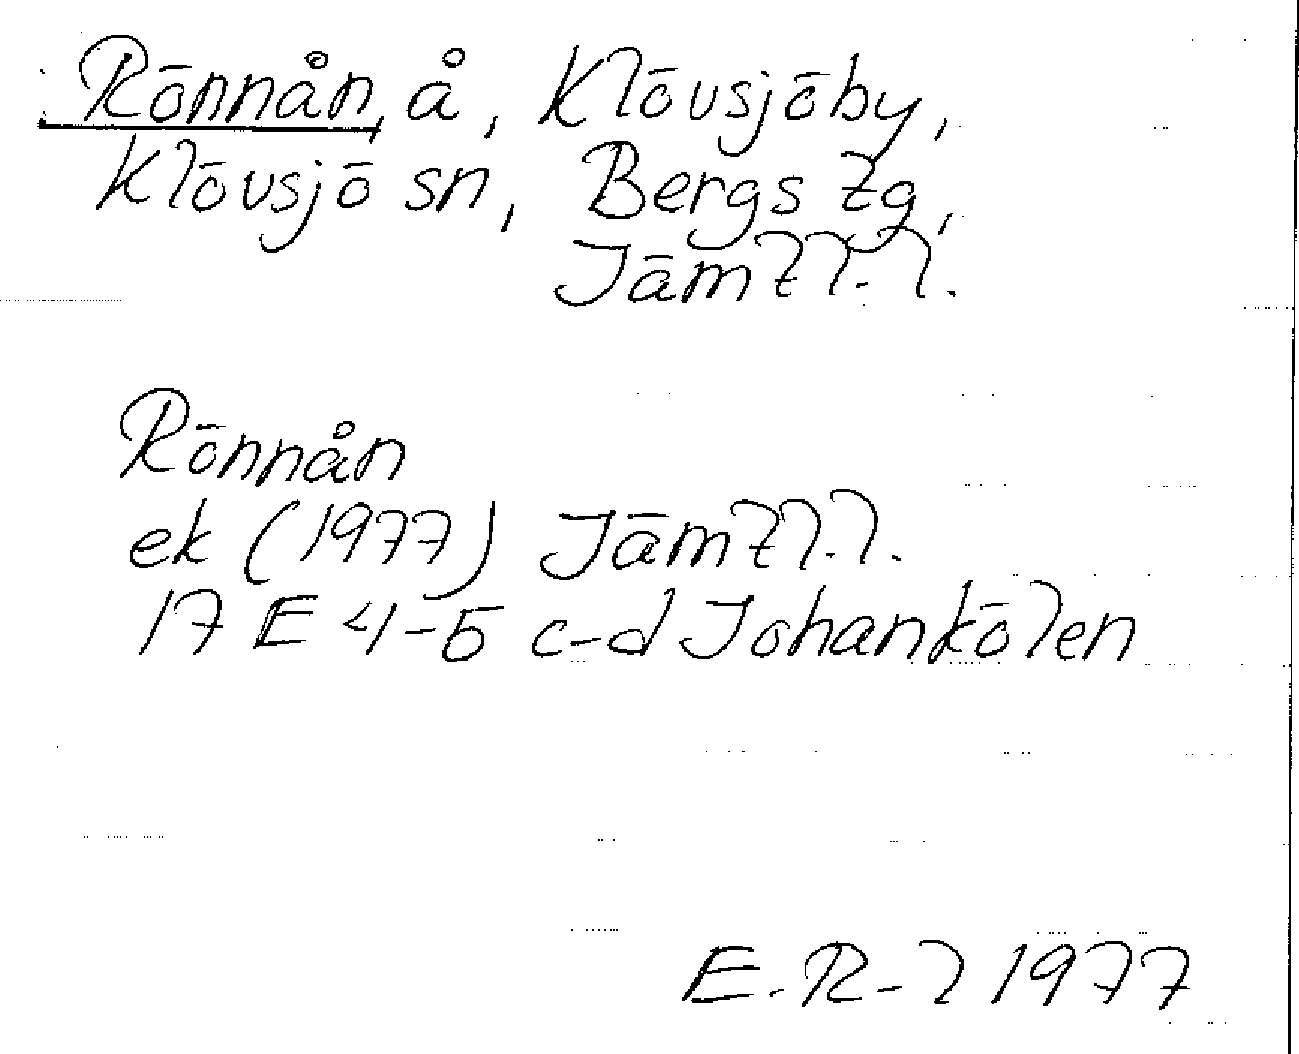 Rönnån, å, Klövsjöby,
Klövsjö sn, Bergs tg,
Jämtl. l.
Rönnån
ek (1977) Jämtl. l.
17 E 4-5 c-d Johankölen
E. R-l 1977